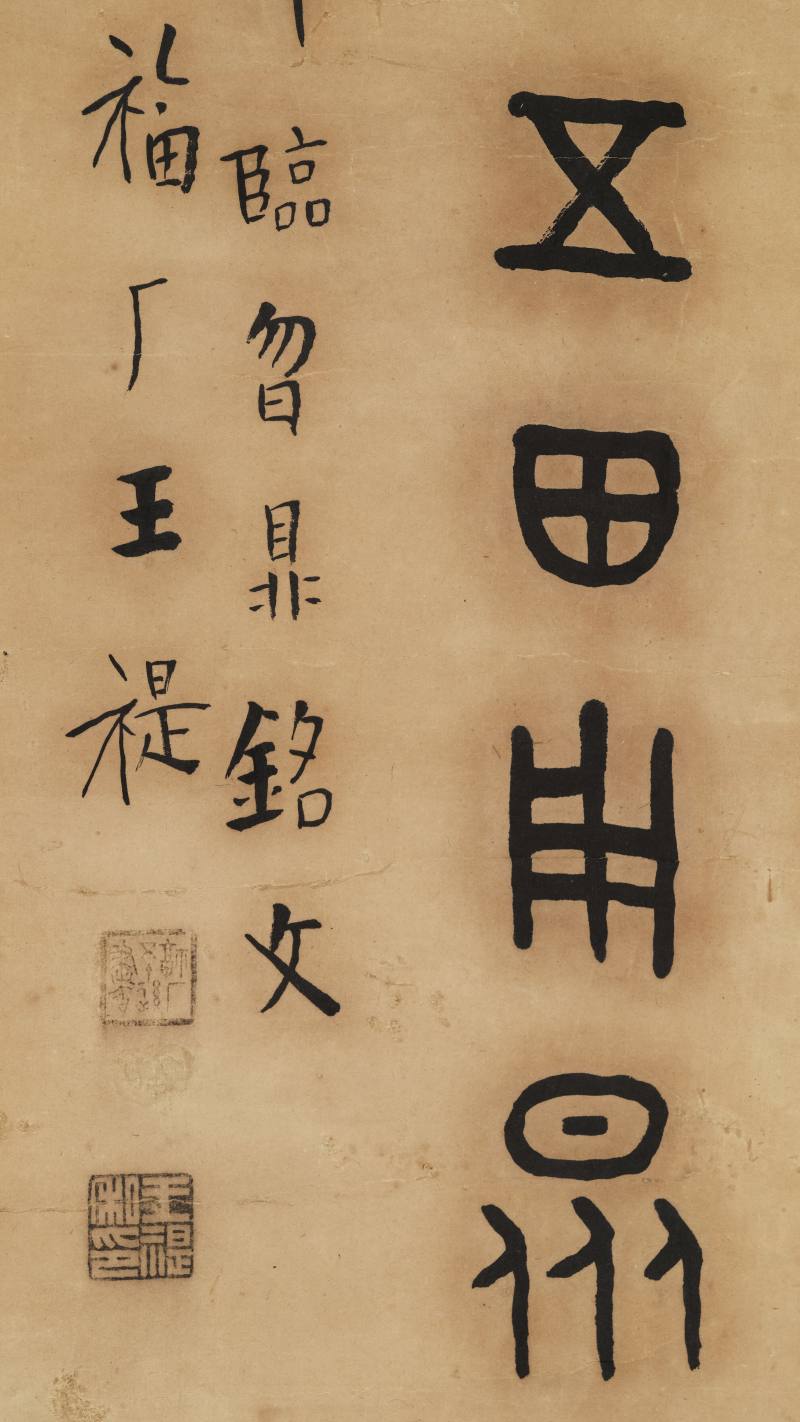 五田用眾
臨曶鼎銘文
福厂王禔
王禔私印